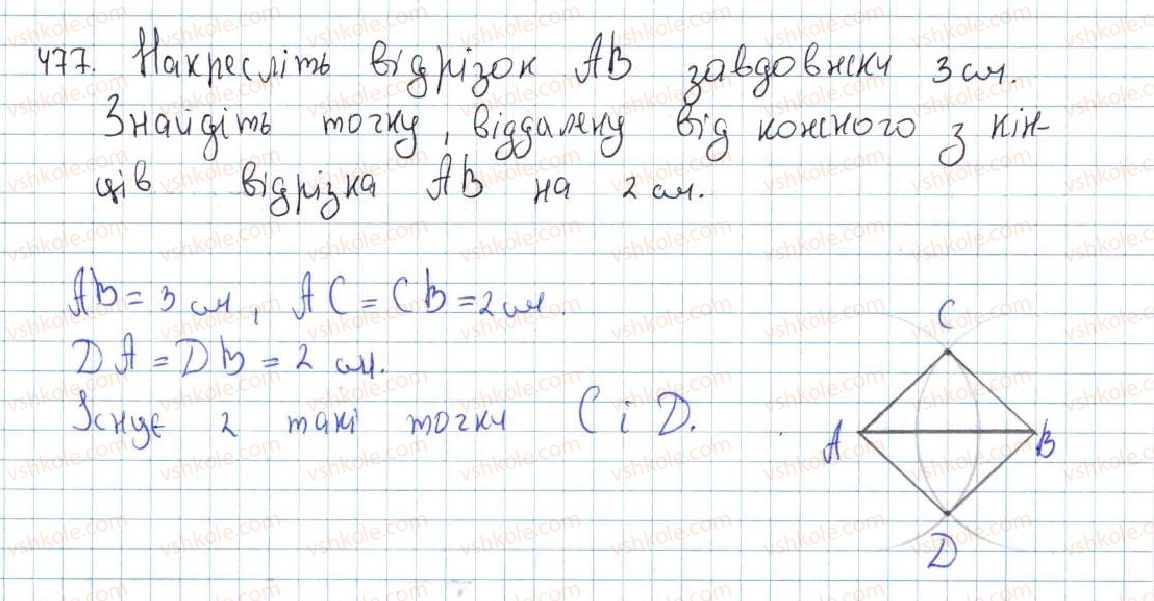 477. Накресліть відрізок AB завдовжки 3 см.
Знайдіть точку, віддалену від кожного з кін-
ців відрізка AB на 2 см.
AB = 3 см, AC = CB = 2 см.
DA = DB = 2 см.
Існує 2 такі точки C і D.
C
A
B
D